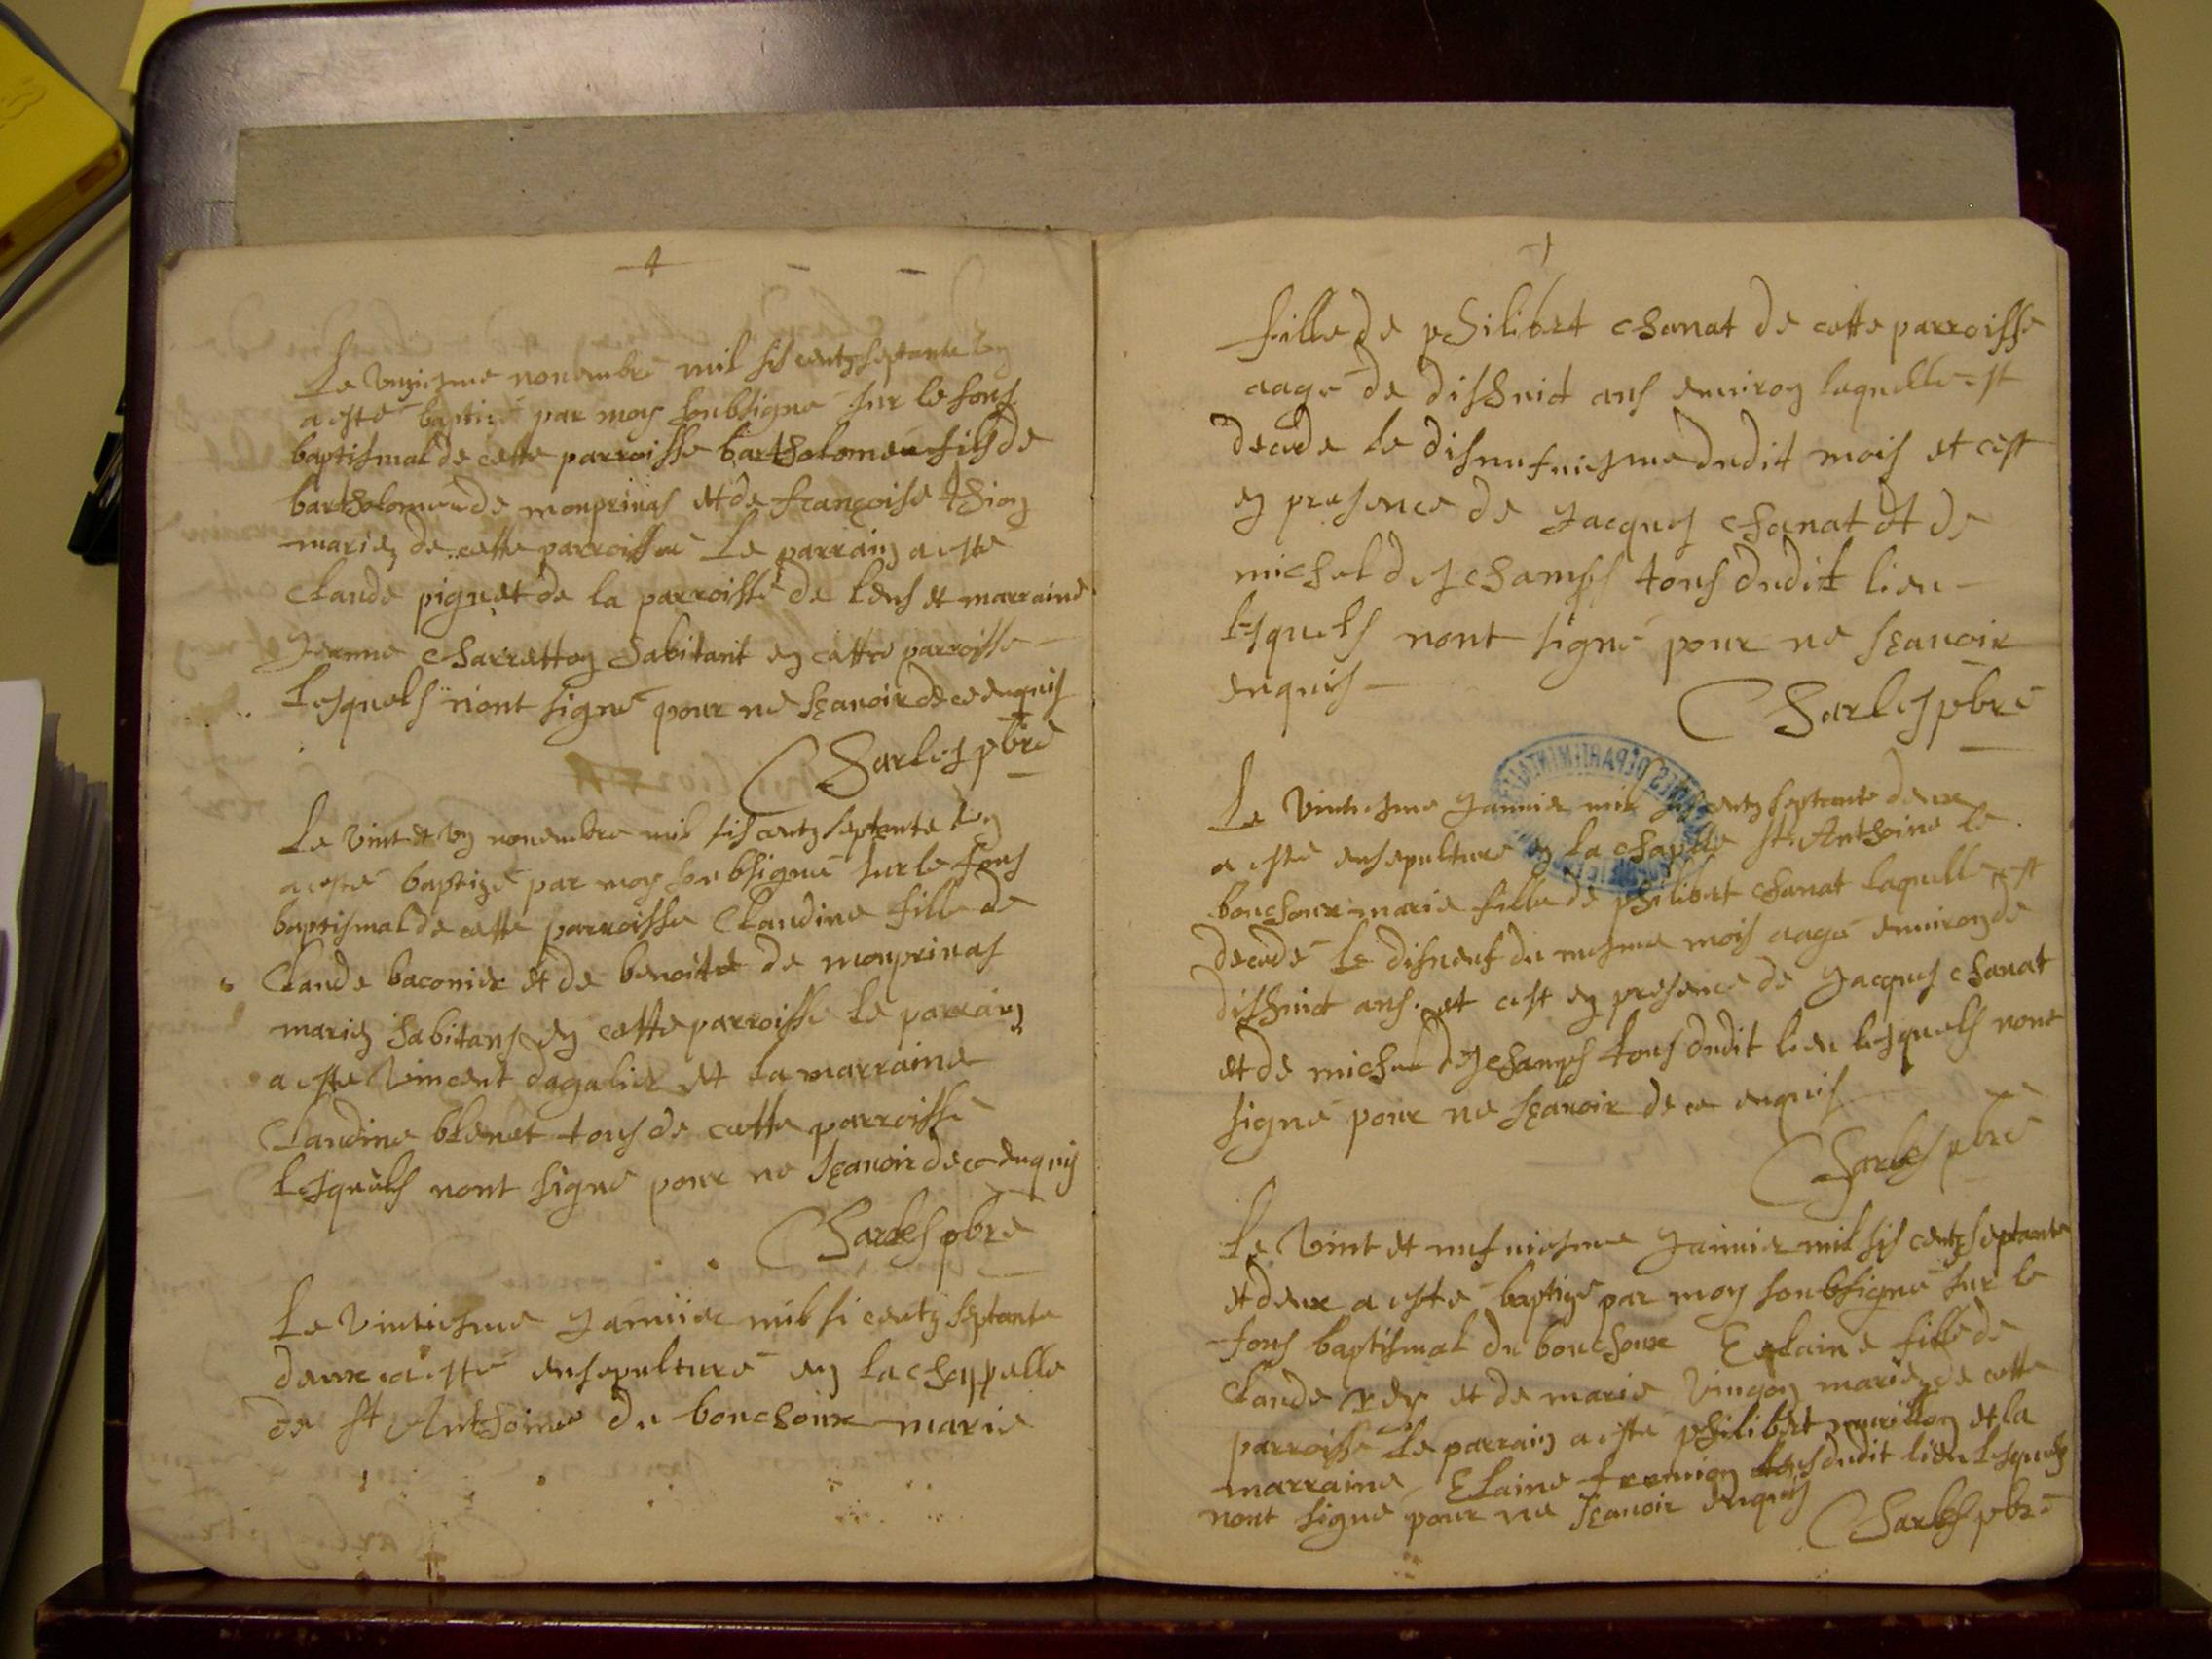 Le vingiesme novembre mil sis centz septante ung
a esté baptisé par moy soubsigné sur le fons
baptismal de cette parroisse bartholomeu fils de
bartholomeu de monprivas et de françoise thion
mariez de cette parroisse Le parrain a este
Claude piguet de la parroisse de Lens et marraine
Jeanne charretton habitant en cette parroisse
Lesquels n'ont signé pour ne sçavoir de ce enquis
Charles pbre
Le vint et un novembre mil sis centz septante ung
a esté baptizé par moy soubsigné sur le fons
baptismal de cette parroisse Claudine fille de
Claude baconier et de benoite de monprivas
mariez habitans en cette parroisse Le parrain
a esté Vincent dagalier et la marraine
Claudine blenet tous de cette parroisse
Lesquels nont signé pour ne sçavoir de ce enquis
Charles pbre
Le vintiesme Janvier mil si centz septante
deux a esté ensepulturé en la chappelle
de st Anthoine du bouchoux marie
fille de philibert chanat de cette parroisse
aagé de dishuict ans environ laquelle est
decede le disnufviesme dudit mois et cest
en presence de Jacques chanat et de
michel deschamps tous dudit lieu
lesquels nont signé pour ne sçavoir
enquis
Charles pbre
Le vintiesme Janvier mil sis centz septante deux
a esté ensepulturé en la chapelle st Anthoine le
bouchoux marie fille de philibert chanat laquelle est
decedé le disneuf du mesme mois aagé environ de
dishuict ans et cest en presence de Jacques chanat
et de michel deschamps tous dudit lieu lesquels nont
signé pour ne sçavoir de ce enquis
Charles pbre
Le vint et nufviesme Janvier mil sis centz septante
et deux a esté baptizé par moy soubsigné sur le
fons baptismal du bouchoux Elaine fille de
Claude rey et de marie vingon mariez de cette
parroisse Le parrain a esté philibert murillon et la
marraine Elaine fremion tous dudit lieu lesquels
nont signé pour ne sçavoir enquis
Charles pbre